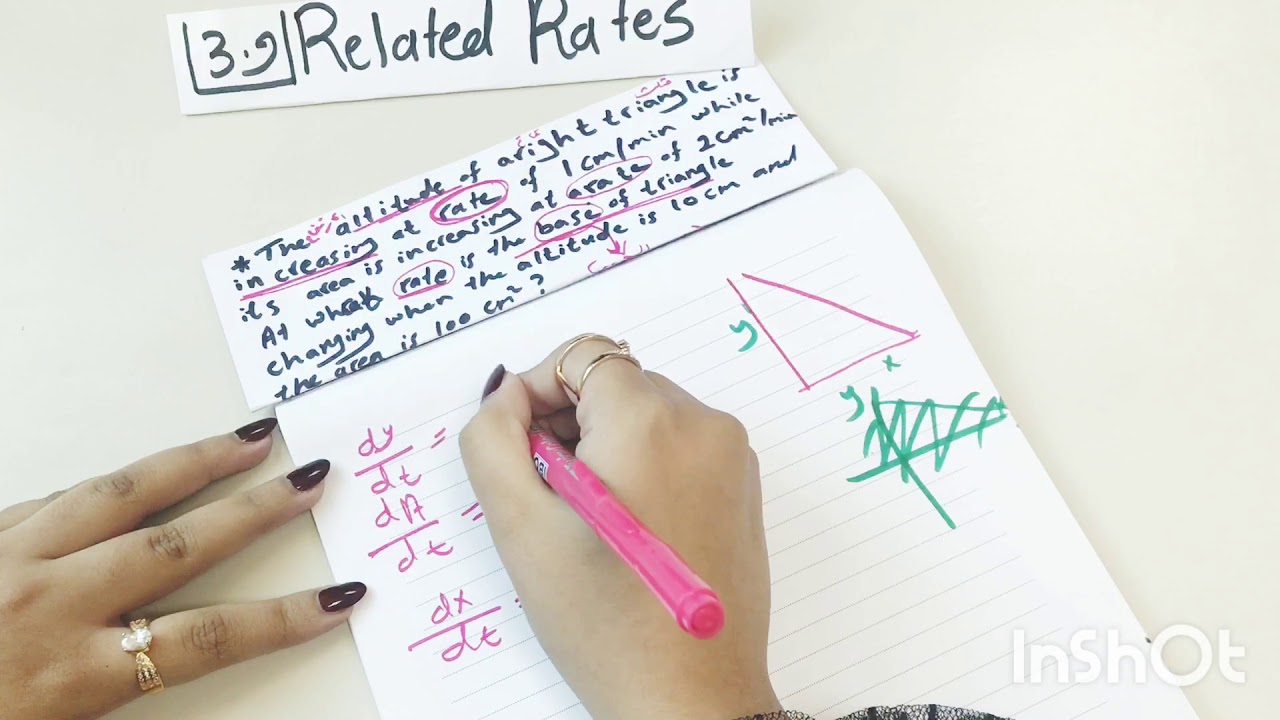 3.9 Related Rates
* The altitude of aright triangle is
increasing at rate of 1 cm/min while
its area is increasing at arate of 2 cm²/min
At what rate is the base of triangle
changing when the altitude is 10 cm and
the area is 100 cm² ?
y
x
y
dy/dt =
dA/dt =
dx/dt =
InShOt